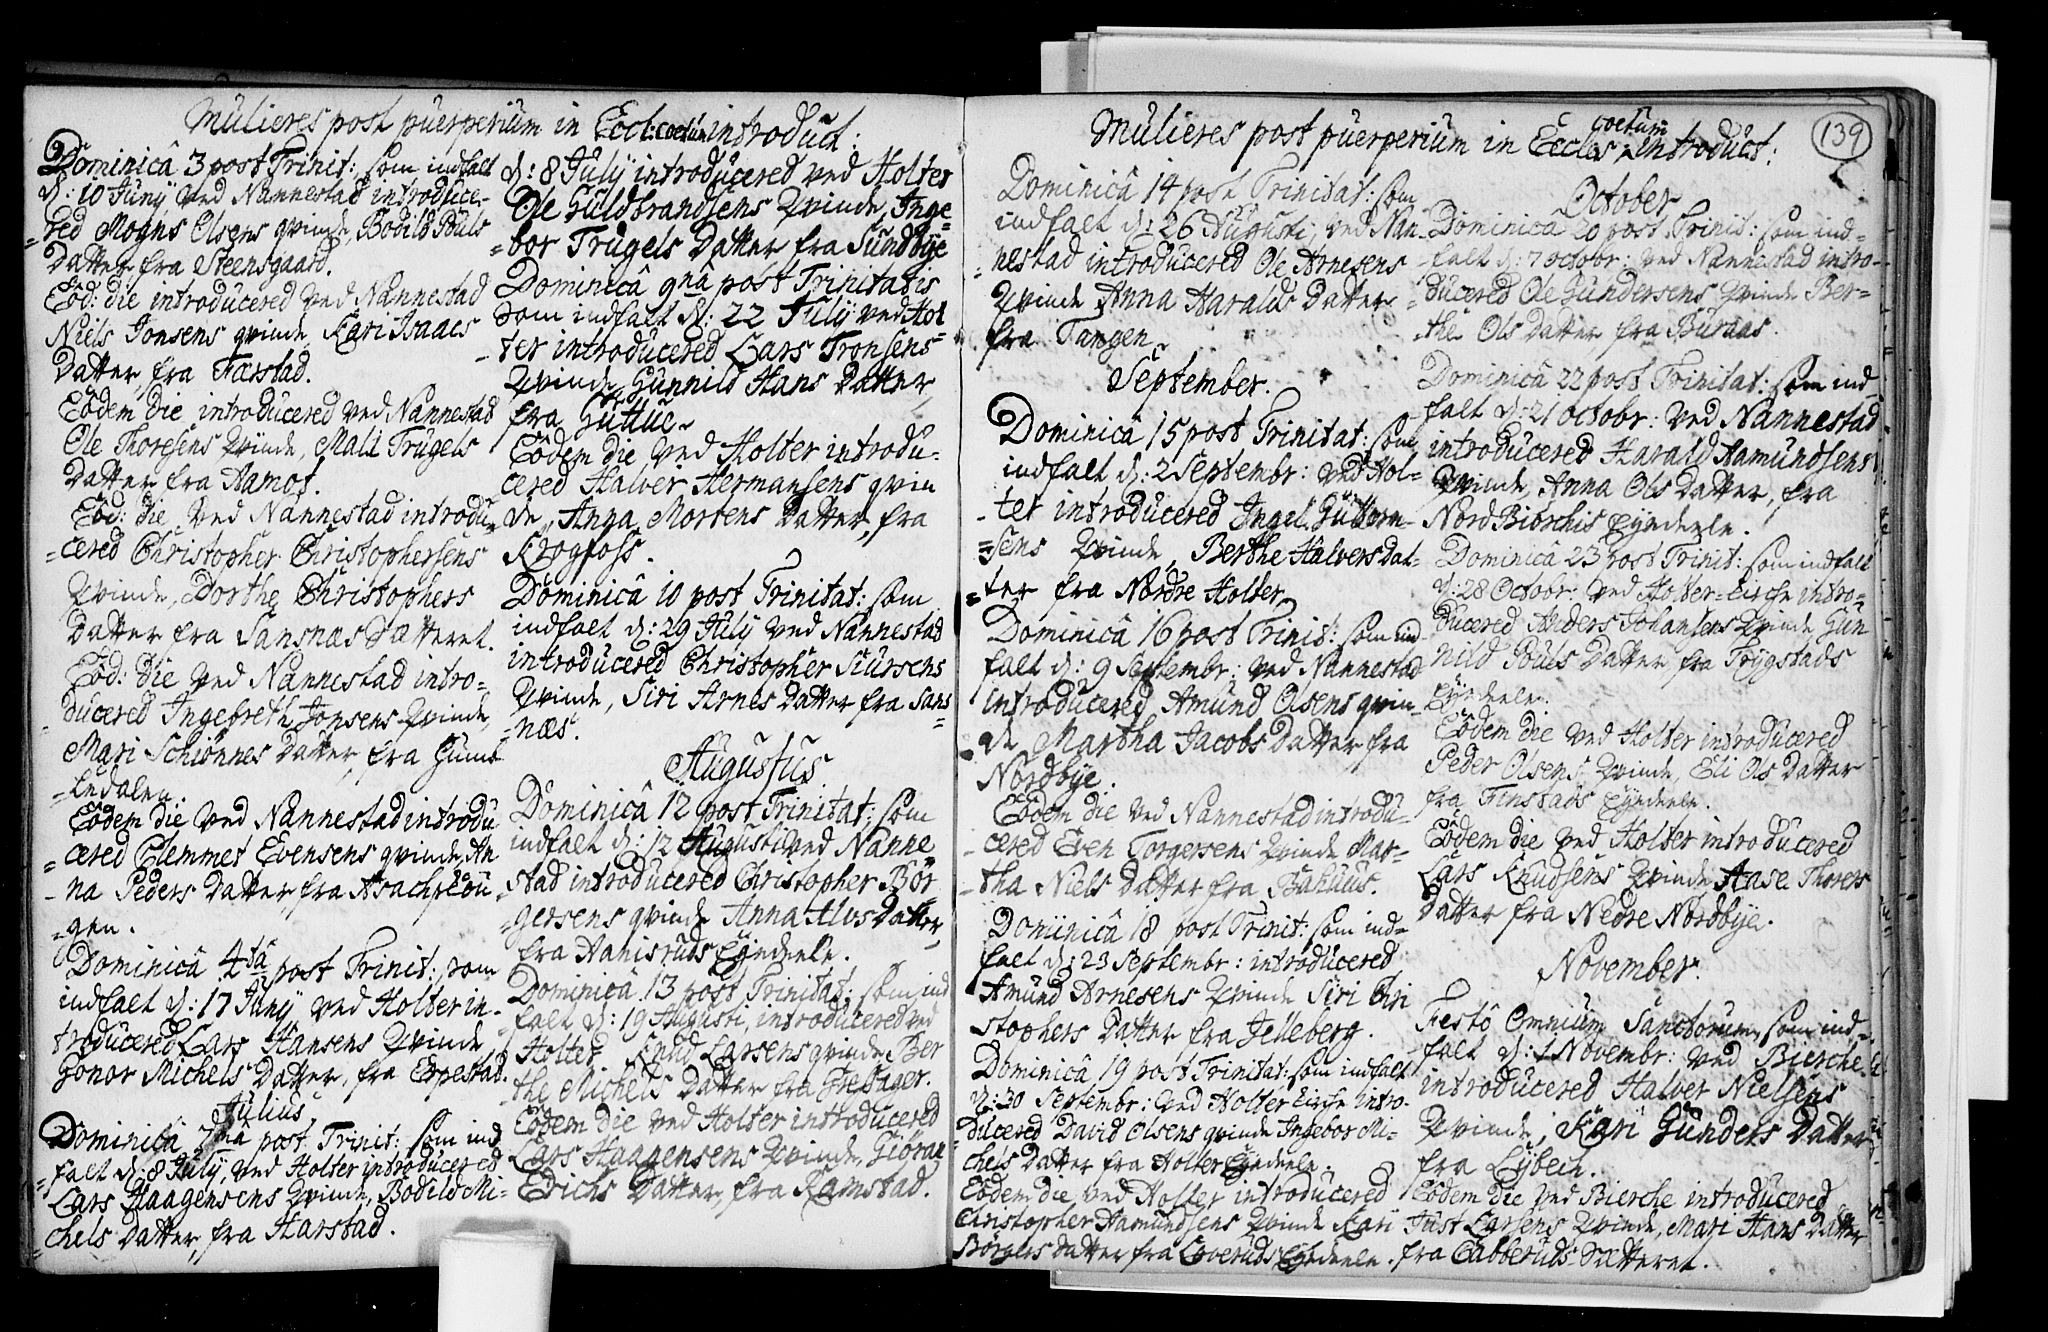 Mulieres post puerperium in Eccl: coetum introduct:
Dominicâ 3 post Trinit: som indfalt
d: 10 Junÿ ved Nannestad introduce-
=red Mogns Olsens qvinde, Bodild Pouls
Datter fra Steensgaard.
Eod: die introducered ved Nannestad
Niels Jonsens qvinde, Kari Isaacs
Datter, fra Farstad.
Eodem die introducered ved Nannestad
Ole Thoresens Qvinde, Mali Trugels
Datter fra Aamot.
Eod: die, ved Nannestad introdu-
=cered Christopher Christophersens
Qvinde, Dorthe Christophers
Datter fra Sansnæs Sætteret.
Eod: die ved Nannestad intro-
ducered Ingebreth Jonsens Qvinde,
Mari Schiønnes Datter, fra
Eodem die ved Nannestad introdu
=cered Clemmet Evensens qvinde, An
-na Peders Datter, fra
=gen.
Dominicâ 4tâ post Trinit: som
indfalt d: 17 Junÿ ved Holter in-
troducered Lars Hansens Qvinde
Gonor Michels Datter, fra Erpestad.
Julius
Dominicâ 7mâ post Trinit: som ind
=falt d: 8 Julÿ, ved Holter introducered
Lars Haagensens Qvinde, Bodild Mi-
=chels Datter, fra Harstad.
d: 8 Julÿ introducered ved Holter
Ole Guldbrandsens Qvinde, Inge-
=bor Trugels Datter fra Sundbÿe
Dominicâ 9nâ post Trinitatis
som indfalt d: 22 Julÿ ved Hol
-ter introducered Lars Tronsens
Qvinde, Gunnild Hans Datter
fra
Eodem die, ved Holter introdu-
cered Halver Hermansens qvin
de, Anna Mortens Datter, fra
Krogfoss.
Dominicâ 10 post Trinitat: som
indfalt d: 29 Julÿ ved Nannestad
introducered Christopher Siursens
Qvinde, Siri Arnes Datter fra Sans
=næs.
Augustus
Dominicâ 12 post Trinitat: som
indfalt d: 12 Augusti ved Nanne
stad introducered Christopher Bør
=gersens qvinde Anna Alvs Datter,
fra Eÿedeele.
Dominicâ 13 post Trinitat: som ind
falt d: 19 Augusti, introducered ved
Holter Knud Larsens qvinde, Ber
the Michels Datter fra
Eodem die ved Holter introducered
Lars Haagensens Qvinde, Giøran
Erichs Datter, fra Ramstad.
139
Mulieres post puerperium in Eccles: coetum introduct:
Dominicâ 14 post Trinitat: som
indfalt d: 26 Augusti, ved Nan-
=nestad introducered Ole Arnesens
Qvinde Anna Haralds Datter
fra Tangen.
September.
Dominicâ 15 post Trinitat: som
indfalt d: 2 Septembr: ved Hol-
-ter introducered Ingel Guttorm-
=sens Qvinde, Berthe Halvers Dat-
=ter fra Nordre Holter.
Dominicâ 16 post Trinit: som ind
falt d: 9 Septembr: ved Nannestad
introducered Amund Olsens qvin
-de Martha Jacobs Datter fra
Nordbÿe.
Eodem die ved Nannestad introdu-
-cered Even Torgersens Qvinde Mar-
-tha Niels Datter fra Bahuus.
Dominicâ 18 post Trinit: som ind-
falt d: 23 Septembr: introducered
Amund Arnesens Qvinde Siri Chri
stophers Datter fra Jelleberg.
Dominicâ 19 post Trinitat: som indfalt
d: 30 Septembr: ved Holter Kirche intro-
ducered David Olsens qvinde Ingebor Mi-
chels Datter fra Holter Eÿedeele.
Eodem die ved Holter introducered
Christopher Aamundsens Qvinde Kari
Børgers Datter fra Løveruds Eÿedeele.
October
Dominicâ 20 post Trinit: som ind-
-falt d: 7 Octobr: ved Nannestad intro-
=ducered Ole Gundersens Qvinde Ber-
-the Ols Datter, fra Buraas.
Dominicâ 22 post Trinitat: som ind
falt d: 21 Octobr: ved Nannestad
introducered Harald Aamundsens
Qvinde, Anna Ols Datter, fra
Nord Eÿedeele.
Dominicâ 23 post Trinit: som indfalt
d: 28 Octobr: ved Holter-Kirche intro-
ducered Anders Johansens Qvinde Gun
nild Pouls Datter, fra Trÿgstads
Eÿedeele.
Eodem die ved Holter introducered
Peder Olsens Qvinde, Eli Ols Datter
fra Finstads Eÿedeele.
Eodem die ved Holter introducered
Lars Knudsens Qvinde Aase Thorers
Datter fra Nedre Nordbÿe.
November.
Festô Omnium Sanctorum, som ind-
falt d: 1 Novembr: ved Bierche
introducered Halver Nielsens
Qvinde, Kari Gunders Datter
fra Lÿbech.
Eodem die ved Bierche introducered
Just Larsens Qvinde, Mari Hans Datter
fra Cabberuds-Sætteret.